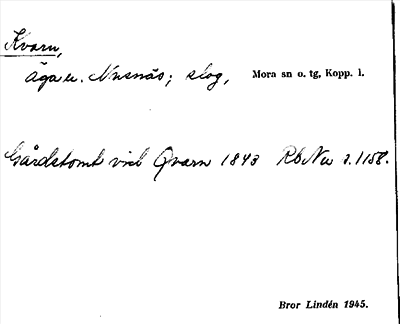 Kvarn,
äga e. Nusnäs; skog, Mora sn o. tg, Kopp. l.
Gårdstomt vid Qvarn 1843 RbNu s. 1158.
Bror Lindén 1945.